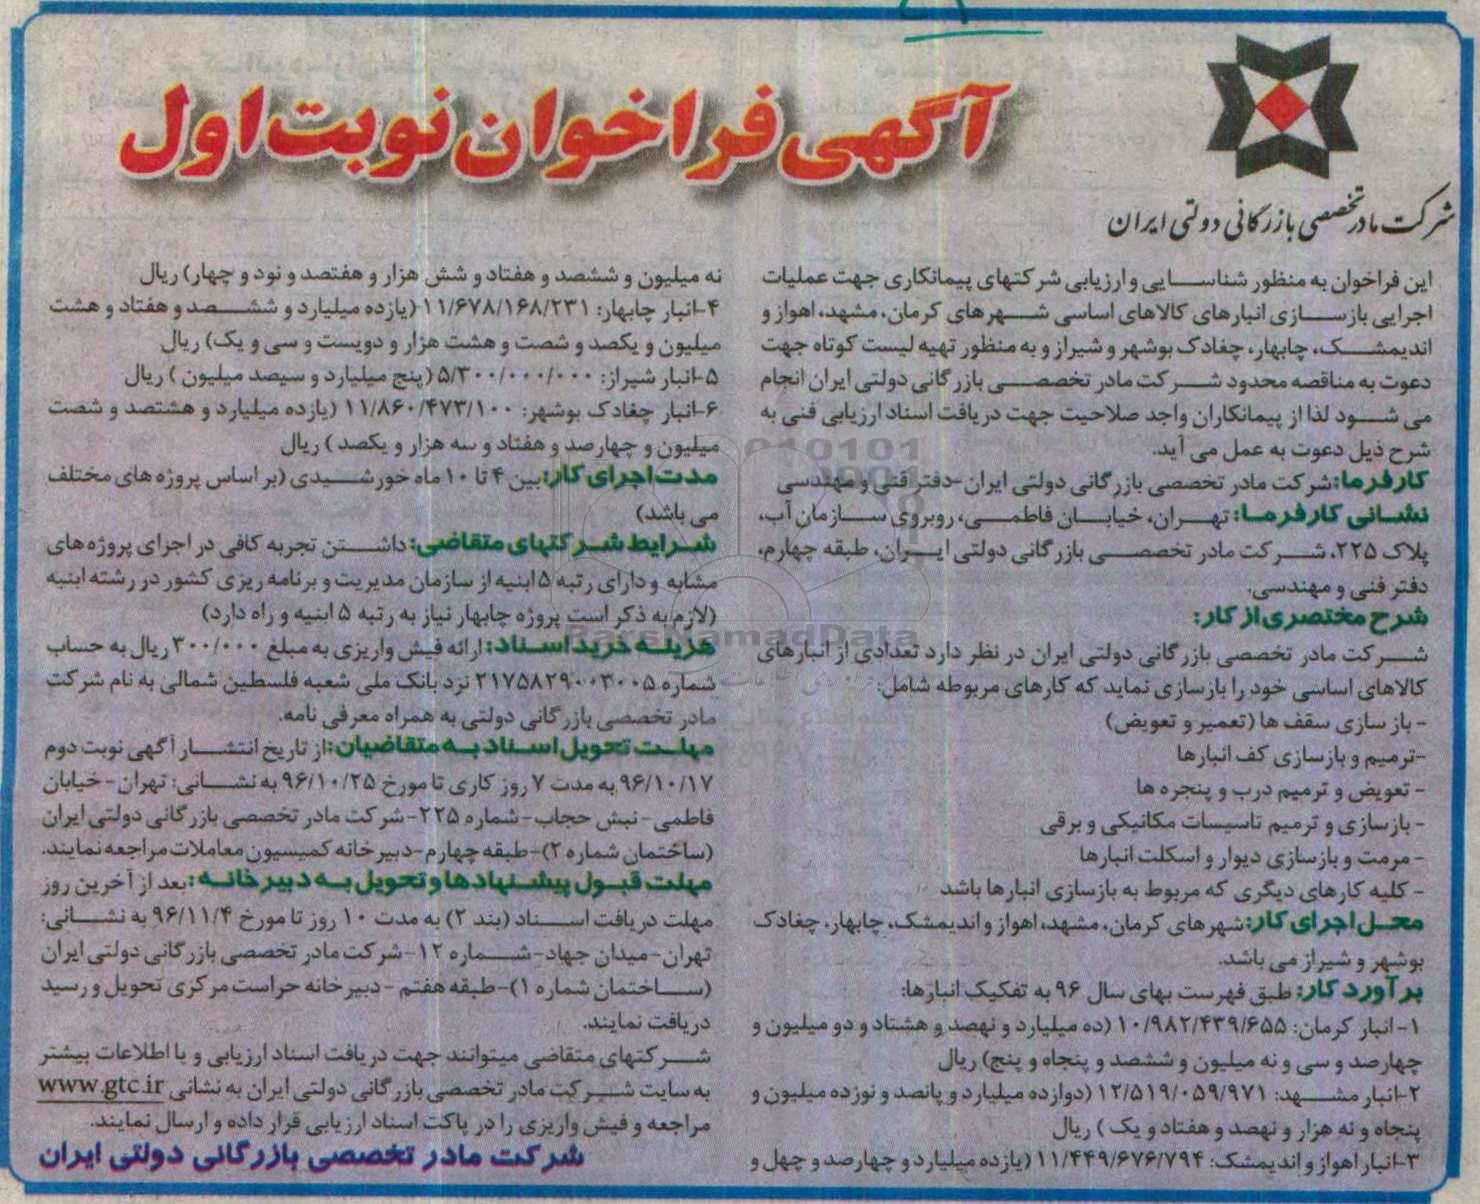 آگهی فراخوان نوبت اول
شرکت مادر تخصصی بازرگانی دولتی ایران
این فراخوان به منظور شناسایی و ارزیابی شرکتهای پیمانکاری جهت عملیات
اجرایی بازسازی انبارهای کالاهای اساسی شهرهای کرمان، مشهد، اهواز و
اندیمشک، چابهار، چغادک بوشهر و شیراز و به منظور تهیه لیست کوتاه جهت
دعوت به مناقصه محدود شرکت مادر تخصصی بازرگانی دولتی ایران انجام
می شود لذا از پیمانکاران واجد صلاحیت جهت دریافت اسناد ارزیابی فنی به
شرح ذیل دعوت به عمل می آید.
کارفرما: شرکت مادر تخصصی بازرگانی دولتی ایران-دفتر فنی و مهندسی
نشانی کارفرما: تهران، خیابان فاطمی، روبروی سازمان آب،
پلاک ۲۲۵، شرکت مادر تخصصی بازرگانی دولتی ایران، طبقه چهارم،
دفتر فنی و مهندسی.
شرح مختصری از کار:
شرکت مادر تخصصی بازرگانی دولتی ایران در نظر دارد تعدادی از انبارهای
کالاهای اساسی خود را بازسازی نماید که کارهای مربوطه شامل:
- باز سازی سقف ها (تعمیر و تعویض)
-ترمیم و بازسازی کف انبارها
- تعویض و ترمیم درب و پنجره ها
- بازسازی و ترمیم تاسیسات مکانیکی و برقی
- مرمت و بازسازی دیوار و اسکلت انبارها
- کلیه کارهای دیگری که مربوط به بازسازی انبارها باشد
محل اجرای کار: شهرهای کرمان، مشهد، اهواز و اندیمشک، چابهار، چغادک
بوشهر و شیراز می باشد.
برآورد کار: طبق فهرست بهای سال ۹۶ به تفکیک انبارها:
۱- انبار کرمان: ۱۰/۹۸۲/۴۳۹/۶۵۵ (ده میلیارد و نهصد و هشتاد و دو میلیون و
چهارصد و سی و نه میلیون و ششصد و پنجاه و پنج) ریال
۲-انبار مشهد: ۱۲/۵۱۹/۰۵۹/۹۷۱ (دوازده میلیارد و پانصد و نوزده میلیون و
پنجاه و نه هزار و نهصد و هفتاد و یک ) ریال
۳-انبار اهواز و اندیمشک: ۱۱/۴۴۹/۶۷۶/۷۹۴ (یازده میلیارد و چهارصد و چهل و
نه میلیون و ششصد و هفتاد و شش هزار و هفتصد و نود و چهار) ریال
۴-انبار چابهار: ۱۱/۶۷۸/۱۶۸/۲۳۱ (یازده میلیارد و ششصد و هفتاد و هشت
میلیون و یکصد و شصت و هشت هزار و دویست و سی و یک) ریال
۵-انبار شیراز: ۵/۳۰۰/۰۰۰/۰۰۰ (پنج میلیارد و سیصد میلیون ) ریال
۶-انبار چغادک بوشهر: ۱۱/۸۶۰/۴۷۳/۱۰۰ (یازده میلیارد و هشتصد و شصت
میلیون و چهارصد و هفتاد و سه هزار و یکصد ) ریال
مدت اجرای کار: بین ۴ تا ۱۰ ماه خورشیدی (بر اساس پروژه های مختلف
می باشد)
شرایط شرکتهای متقاضی: داشتن تجربه کافی در اجرای پروژه های
مشابه و دارای رتبه ۵ ابنیه از سازمان مدیریت و برنامه ریزی کشور در رشته ابنیه
(لازم به ذکر است پروژه چابهار نیاز به رتبه ۵ ابنیه و راه دارد)
هزینه خرید اسناد: ارائه فیش واریزی به مبلغ ۳۰۰/۰۰۰ ریال به حساب
شماره ۲۱۷۵۸۲۹۰۰۳۰۰۵ نزد بانک ملی شعبه فلسطین شمالی به نام شرکت
مادر تخصصی بازرگانی دولتی به همراه معرفی نامه.
مهلت تحویل اسناد به متقاضیان: از تاریخ انتشار آگهی نوبت دوم
۹۶/۱۰/۱۷ به مدت ۷ روز کاری تا مورخ ۹۶/۱۰/۲۵ به نشانی: تهران- خیابان
فاطمی- نبش حجاب- شماره ۲۲۵-شرکت مادر تخصصی بازرگانی دولتی ایران
(ساختمان شماره ۲)-طبقه چهارم-دبیرخانه کمیسیون معاملات مراجعه نمایند.
مهلت قبول پیشنهادها و تحویل به دبیرخانه: بعد از آخرین روز
مهلت دریافت اسناد (بند ۲) به مدت ۱۰ روز تا مورخ ۹۶/۱۱/۴ به نشانی:
تهران-میدان جهاد-شماره ۱۲-شرکت مادر تخصصی بازرگانی دولتی ایران
(ساختمان شماره ۱)-طبقه هفتم - دبیرخانه حراست مرکزی تحویل و رسید
دریافت نمایند.
شرکتهای متقاضی میتوانند جهت دریافت اسناد ارزیابی و یا اطلاعات بیشتر
به سایت شرکت مادر تخصصی بازرگانی دولتی ایران به نشانی www.gtc.ir
مراجعه و فیش واریزی را در پاکت اسناد ارزیابی قرار داده و ارسال نمایند.
شرکت مادر تخصصی بازرگانی دولتی ایران
ParsNamadData